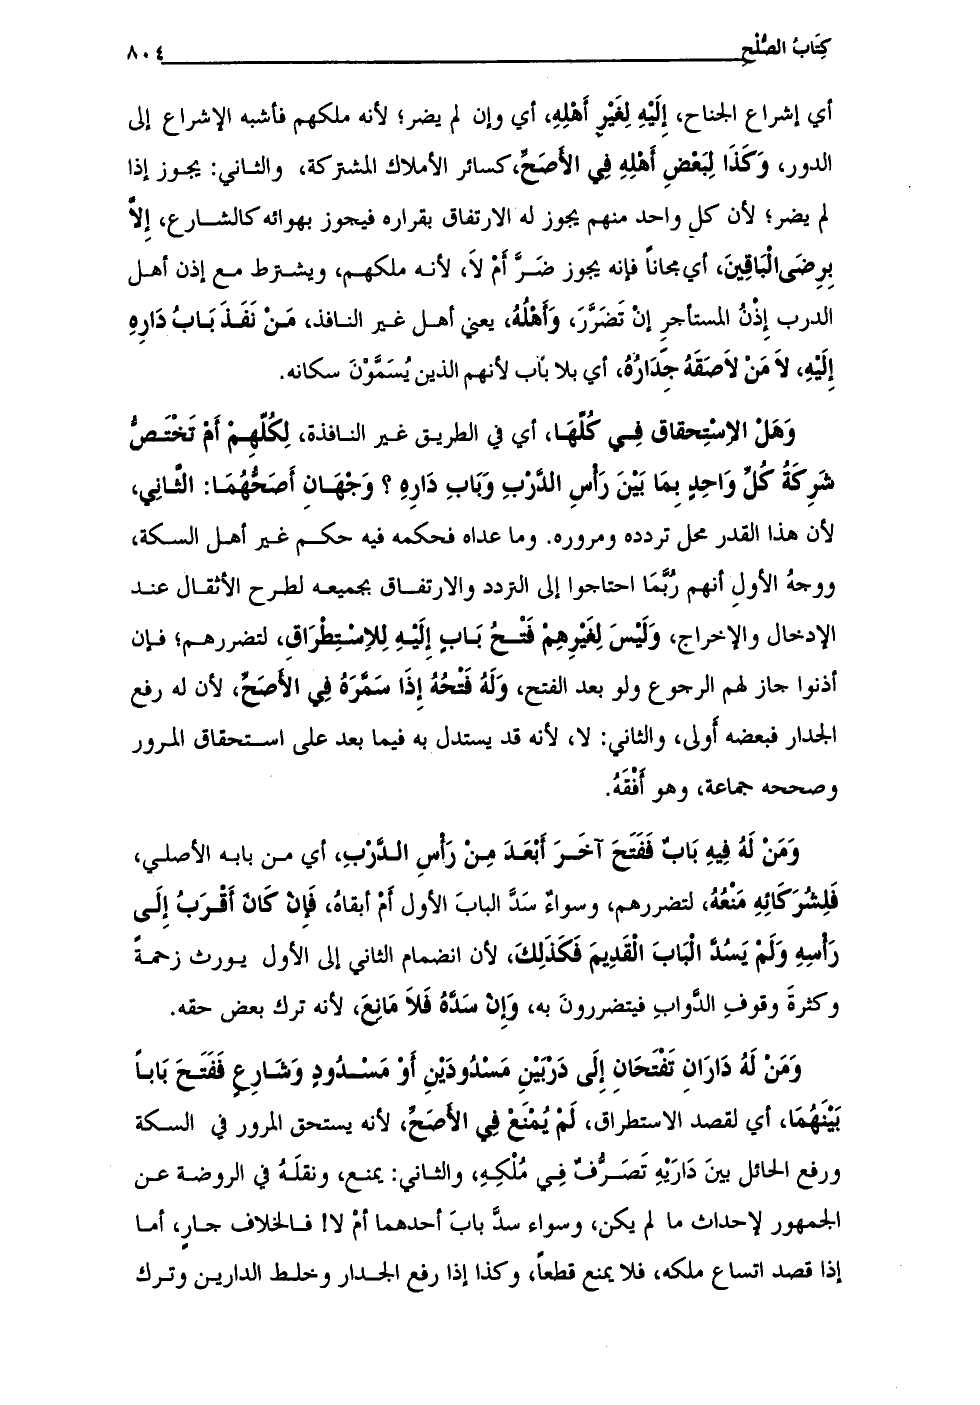 كِتَابُ الصُّلْحِ ٨٠٤
أي إشراع الجناح، إِلَيْهِ لِغَيْرِ أَهْلِهِ، أي وإن لم يضر؛ لأنه ملكهم فأشبه الإشراع إلى
الدور، وَكَذَا لِبَعْضِ أَهْلِهِ فِي الأَصَحِّ، كسائر الأملاك المشتركة، والثاني: يجوز إذا
لم يضر؛ لأن كل واحد منهم يجوز له الارتفاق بقراره فيجوز بهوائه كالشارع، إِلاَّ
بِرِضَى الْبَاقِينَ، أي مجاناً فإنه يجوز ضَرَّ أَمْ لاَ، لأنه ملكهم، ويشترط مع إذن أهل
الدرب إِذْنُ المستأجرِ إنْ تَضَرَّرَ، وَأَهْلُهُ، يعني أهل غير النافذ، مَنْ نَفَذَ بَابُ دَارِهِ
إِلَيْهِ، لاَ مَنْ لاَصَقَهُ جِدَارُهُ، أي بلا باب لأنهم الذين يُسَمَّوْنَ سكانه.
وَهَلْ الاِسْتِحقاق فِي كُلِّهَا، أي في الطريق غير النافذة، لِكُلِّهِمْ أَمْ تَخْتَصُّ
شَرِكَةُ كُلِّ وَاحِدٍ بِمَا بَيْنَ رَأْسِ الدَّرْبِ وَبَابِ دَارِهِ ؟ وَجْهَانِ أَصَحُّهُمَا: الثَّانِي،
لأن هذا القدر محل تردده ومروره. وما عداه فحكمه فيه حكم غير أهل السكة،
ووجهُ الأولِ أنهم رُبَّمَا احتاجوا إلى التردد والارتفاق بجميعه لطرح الأثقال عند
الإدخال والإخراج، وَلَيْسَ لِغَيْرِهِمْ فَتْحُ بَابٍ إِلَيْهِ لِلاِسْتِطْرَاقِ، لتضررهم؛ فإن
أذنوا جاز لهم الرجوع ولو بعد الفتح، وَلَهُ فَتْحُهُ إِذَا سَمَّرَهُ فِي الأَصَحِّ، لأن له رفع
الجدار فبعضه أَولى، والثاني: لا، لأنه قد يستدل به فيما بعد على استحقاق المرور
وصححه جماعة، وهو أَفْقَهُ.
وَمَنْ لَهُ فِيهِ بَابٌ فَفَتَحَ آخَرَ أَبْعَدَ مِنْ رَأْسِ الدَّرْبِ، أي من بابه الأصلي،
فَلِشُرَكَائِهِ مَنْعُهُ، لتضررهم، وسواءٌ سَدَّ البابَ الأول أَمْ أبقاهُ، فَإِنْ كَانَ أَقْرَبُ إِلَى
رَأْسِهِ وَلَمْ يَسُدَّ الْبَابَ الْقَدِيمَ فَكَذَلِكَ، لأن انضمام الثاني إلى الأول يورث زحمةً
وكثرةَ وقوفِ الدَّوابِ فيتضررونَ به، وَإِنْ سَدَّهُ فَلاَ مَانِعَ، لأنه ترك بعض حقه.
وَمَنْ لَهُ دَارَانِ تَفْتَحَانِ إِلَى دَرْبَيْنِ مَسْدُودَيْنِ أَوْ مَسْدُودٍ وَشَارِعٍ فَفَتَحَ بَاباً
بَيْنَهُمَا، أي لقصد الاستطراق، لَمْ يُمْنَعْ فِي الأَصَحِّ، لأنه يستحق المرور في السكة
ورفع الحائل بينَ دَارَيْهِ تَصَرُّفٌ فِي مُلْكِهِ، والثاني: يمنع، ونقلَهُ في الروضة عن
الجمهور لإحداث ما لم يكن، وسواء سدَّ بابَ أحدهما أمْ لا! فالخلاف جارٍ، أما
إذا قصد اتساع ملكه، فلا يمنع قطعاً، وكذا إذا رفع الجدار وخلط الدارين وترك